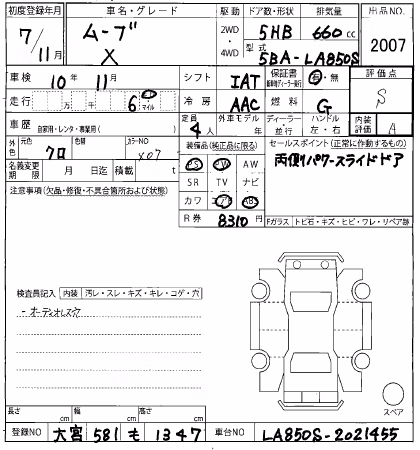 初度登録年月 車名・グレード 駆動 ドア数・形状 排気量 出品NO.
7/11月 ムーブ X 2WD・4WD 5HB 660cc 2007
型式 5BA-LA850S
車検 10年 11月 シフト IAT 保証書 有・無 評価点 S
走行 万 千 6 マイル 冷房 AAC 燃料 G
車歴 自家用・レンタ・事業用( ) 定員 4人 外車モデル 年 ディーラー・並行 ハンドル 左・右 内装評価 A
外色 元色 クロ 色替 カラーNO X07 装備品(純正品に限る) セールスポイント(正常に動作するもの)
名義変更期限 月 日迄 積載 t PS PW AW 両側パワースライドドア
注意事項(欠品・修復・不具合箇所および状態) SR TV ナビ
カワ エアB ABS
R券 8310円 Fガラス トビ石・キズ・ヒビ・ワレ・リペア跡
検査員記入 内装 汚レ・スレ・キズ・キレ・コゲ・穴
スペア
長さ cm 幅 cm 高さ cm
登録NO 大宮 581 も 1347 車台NO LA850S-2021455